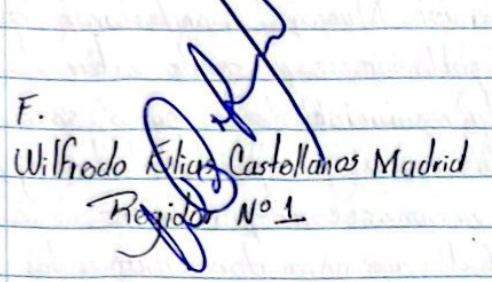 F.
Wilfredo Elias Castellanos Madrid
Regidor Nº 1